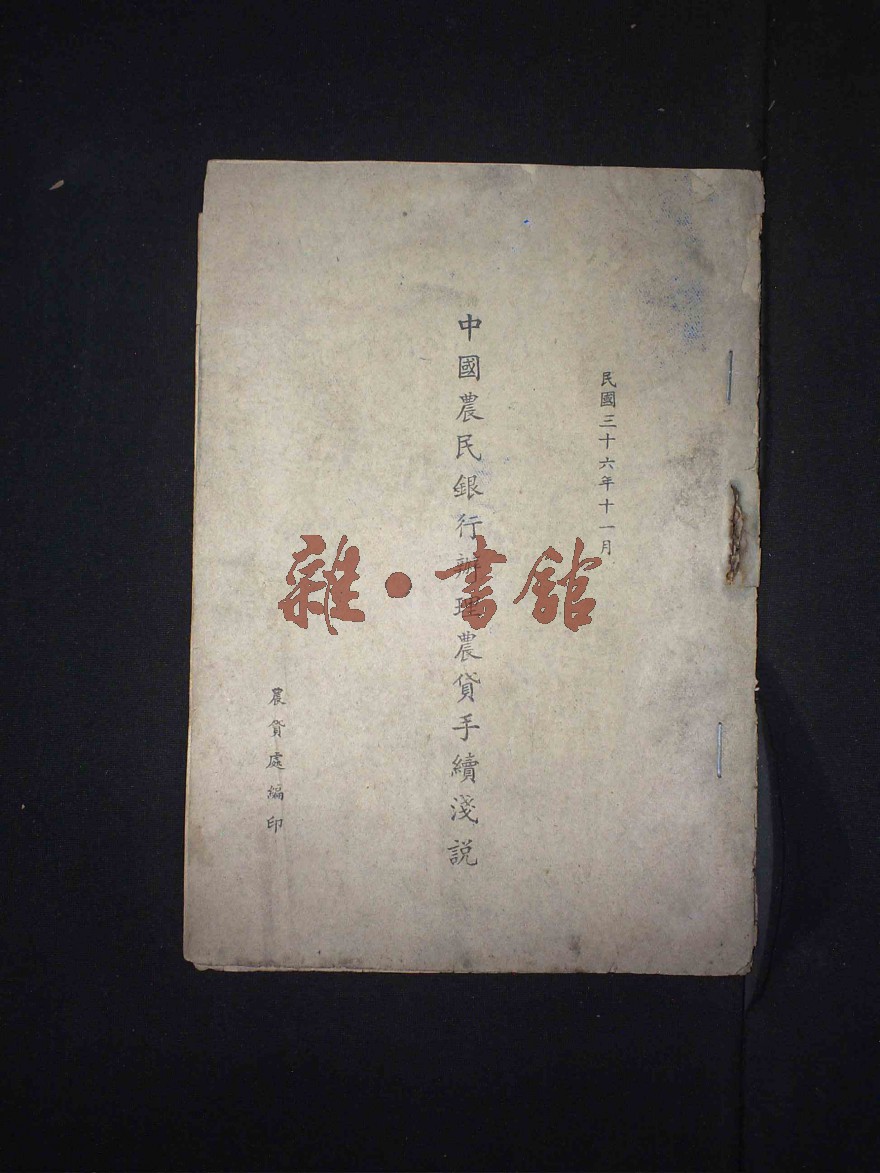 民國三十六年十一月
中國農民銀行辦理農貸手續淺説
農貸處編印
雜·書館